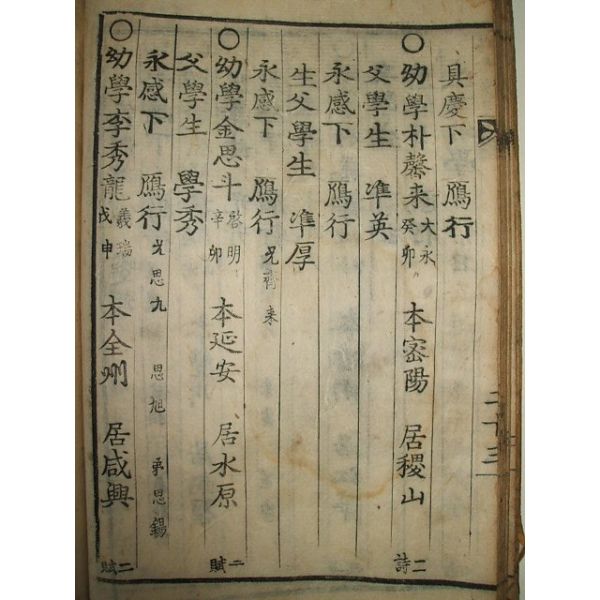 具慶下 鴈行
〇幼學朴馨来 大永 癸卯 本密陽 居稷山 詩二
父學生 準英
永感下 鴈行
生父學生 準厚
永感下 鴈行 兄齊来
〇幼學金思斗 啓明 辛卯 本延安 居水原 賦二
父學生 學秀
永感下 鴈行 兄思九 思旭 弟思錫
〇幼學李秀龍 義瑞 戊申 本全州 居咸興 賦二
二十三